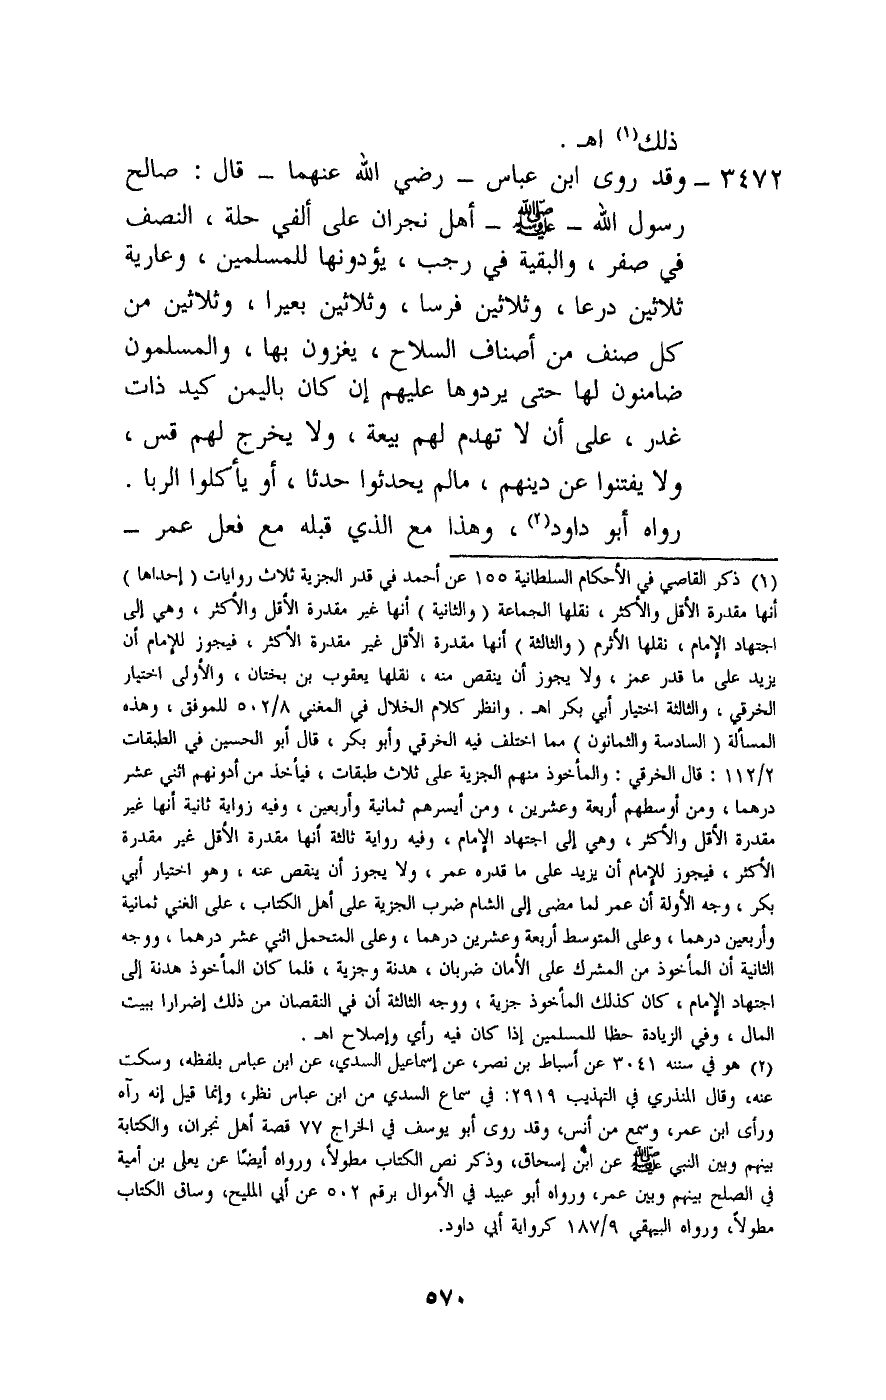 ذلك(١) اهـ .
٣٤٧٢ – وقد روى ابن عباس – رضي الله عنهما – قال : صالح
رسول الله – ﷺ – أهل نجران على ألفي حلة ، النصف
في صفر ، والبقية في رجب ، يؤدونها للمسلمين ، وعارية
ثلاثين درعا ، وثلاثين فرسا ، وثلاثين بعيرا ، وثلاثين من
كل صنف من أصناف السلاح ، يغزون بها ، والمسلمون
ضامنون لها حتى يردوها عليهم إن كان باليمن كيد ذات
غدر ، على أن لا تهدم لهم بيعة ، ولا يخرج لهم قس ،
ولا يفتنوا عن دينهم ، مالم يحدثوا حدثا ، أو يأكلوا الربا .
رواه أبو داود(٢) ، وهذا مع الذي قبله مع فعل عمر –
(١) ذكر القاصي في الأحكام السلطانية ١٥٥ عن أحمد في قدر الجزية ثلاث روايات ( إحداها )
أنها مقدرة الأقل والأكثر ، نقلها الجماعة ( والثانية ) أنها غير مقدرة الأقل والأكثر ، وهي إلى
اجتهاد الإمام ، نقلها الأثرم ( والثالثة ) أنها مقدرة الأقل غير مقدرة الأكثر ، فيجوز للإمام أن
يزيد على ما قدر عمز ، ولا يجوز أن ينقص منه ، نقلها يعقوب بن بختان ، والأولى اختيار
الخرقي ، والثالثة اختيار أبي بكر اهـ . وانظر كلام الخلال في المغني ٥٠٢/٨ للموفق ، وهذه
المسألة ( السادسة والثمانون ) مما اختلف فيه الخرقي وأبو بكر ، قال أبو الحسين في الطبقات
١١٢/٢ : قال الخرقي : والمأخوذ منهم الجزية على ثلاث طبقات ، فيأخذ من أدونهم اثني عشر
درهما ، ومن أوسطهم أربعة وعشرين ، ومن أيسرهم ثمانية وأربعين ، وفيه زواية ثانية أنها غير
مقدرة الأقل والأكثر ، وهي إلى اجتهاد الإمام ، وفيه رواية ثالثة أنها مقدرة الأقل غير مقدرة
الأكثر ، فيجوز للإمام أن يزيد على ما قدره عمر ، ولا يجوز أن ينقص عنه ، وهو اختيار أبي
بكر ، وجه الأولة أن عمر لما مضى إلى الشام ضرب الجزية على أهل الكتاب ، على الغني ثمانية
وأربعين درهما ، وعلى المتوسط أربعة وعشرين درهما ، وعلى المتحمل اثني عشر درهما ، ووجه
الثانية أن المأخوذ من المشرك على الأمان ضربان ، هدنة وجزية ، فلما كان المأخوذ هدنة إلى
اجتهاد الإمام ، كان كذلك المأخوذ جزية ، ووجه الثالثة أن في النقصان من ذلك إضرارا ببيت
المال ، وفي الزيادة حظا للمسلمين إذا كان فيه رأي وإصلاح اهـ .
(٢) هو في سننه ٣٠٤١ عن أسباط بن نصر، عن إسماعيل السدي، عن ابن عباس بلفظه، وسكت
عنه، وقال المنذري في التهذيب ٢٩١٩: في سماع السدي من ابن عباس نظر، وإنما قيل إنه رآه
ورأى ابن عمر، وسمع من أنس، وقد روى أبو يوسف في الخراج ٧٧ قصة أهل نجران، والكتابة
بينهم وبين النبي ﷺ عن ابن إسحاق، وذكر نص الكتاب مطولاً، ورواه أيضًا عن يعلى بن أمية
في الصلح بينهم وبين عمر، ورواه أبو عبيد في الأموال برقم ٥٠٢ عن أبي المليح، وساق الكتاب
مطولاً، ورواه البيهقي ١٨٧/٩ كرواية أبي داود.
٥٧٠